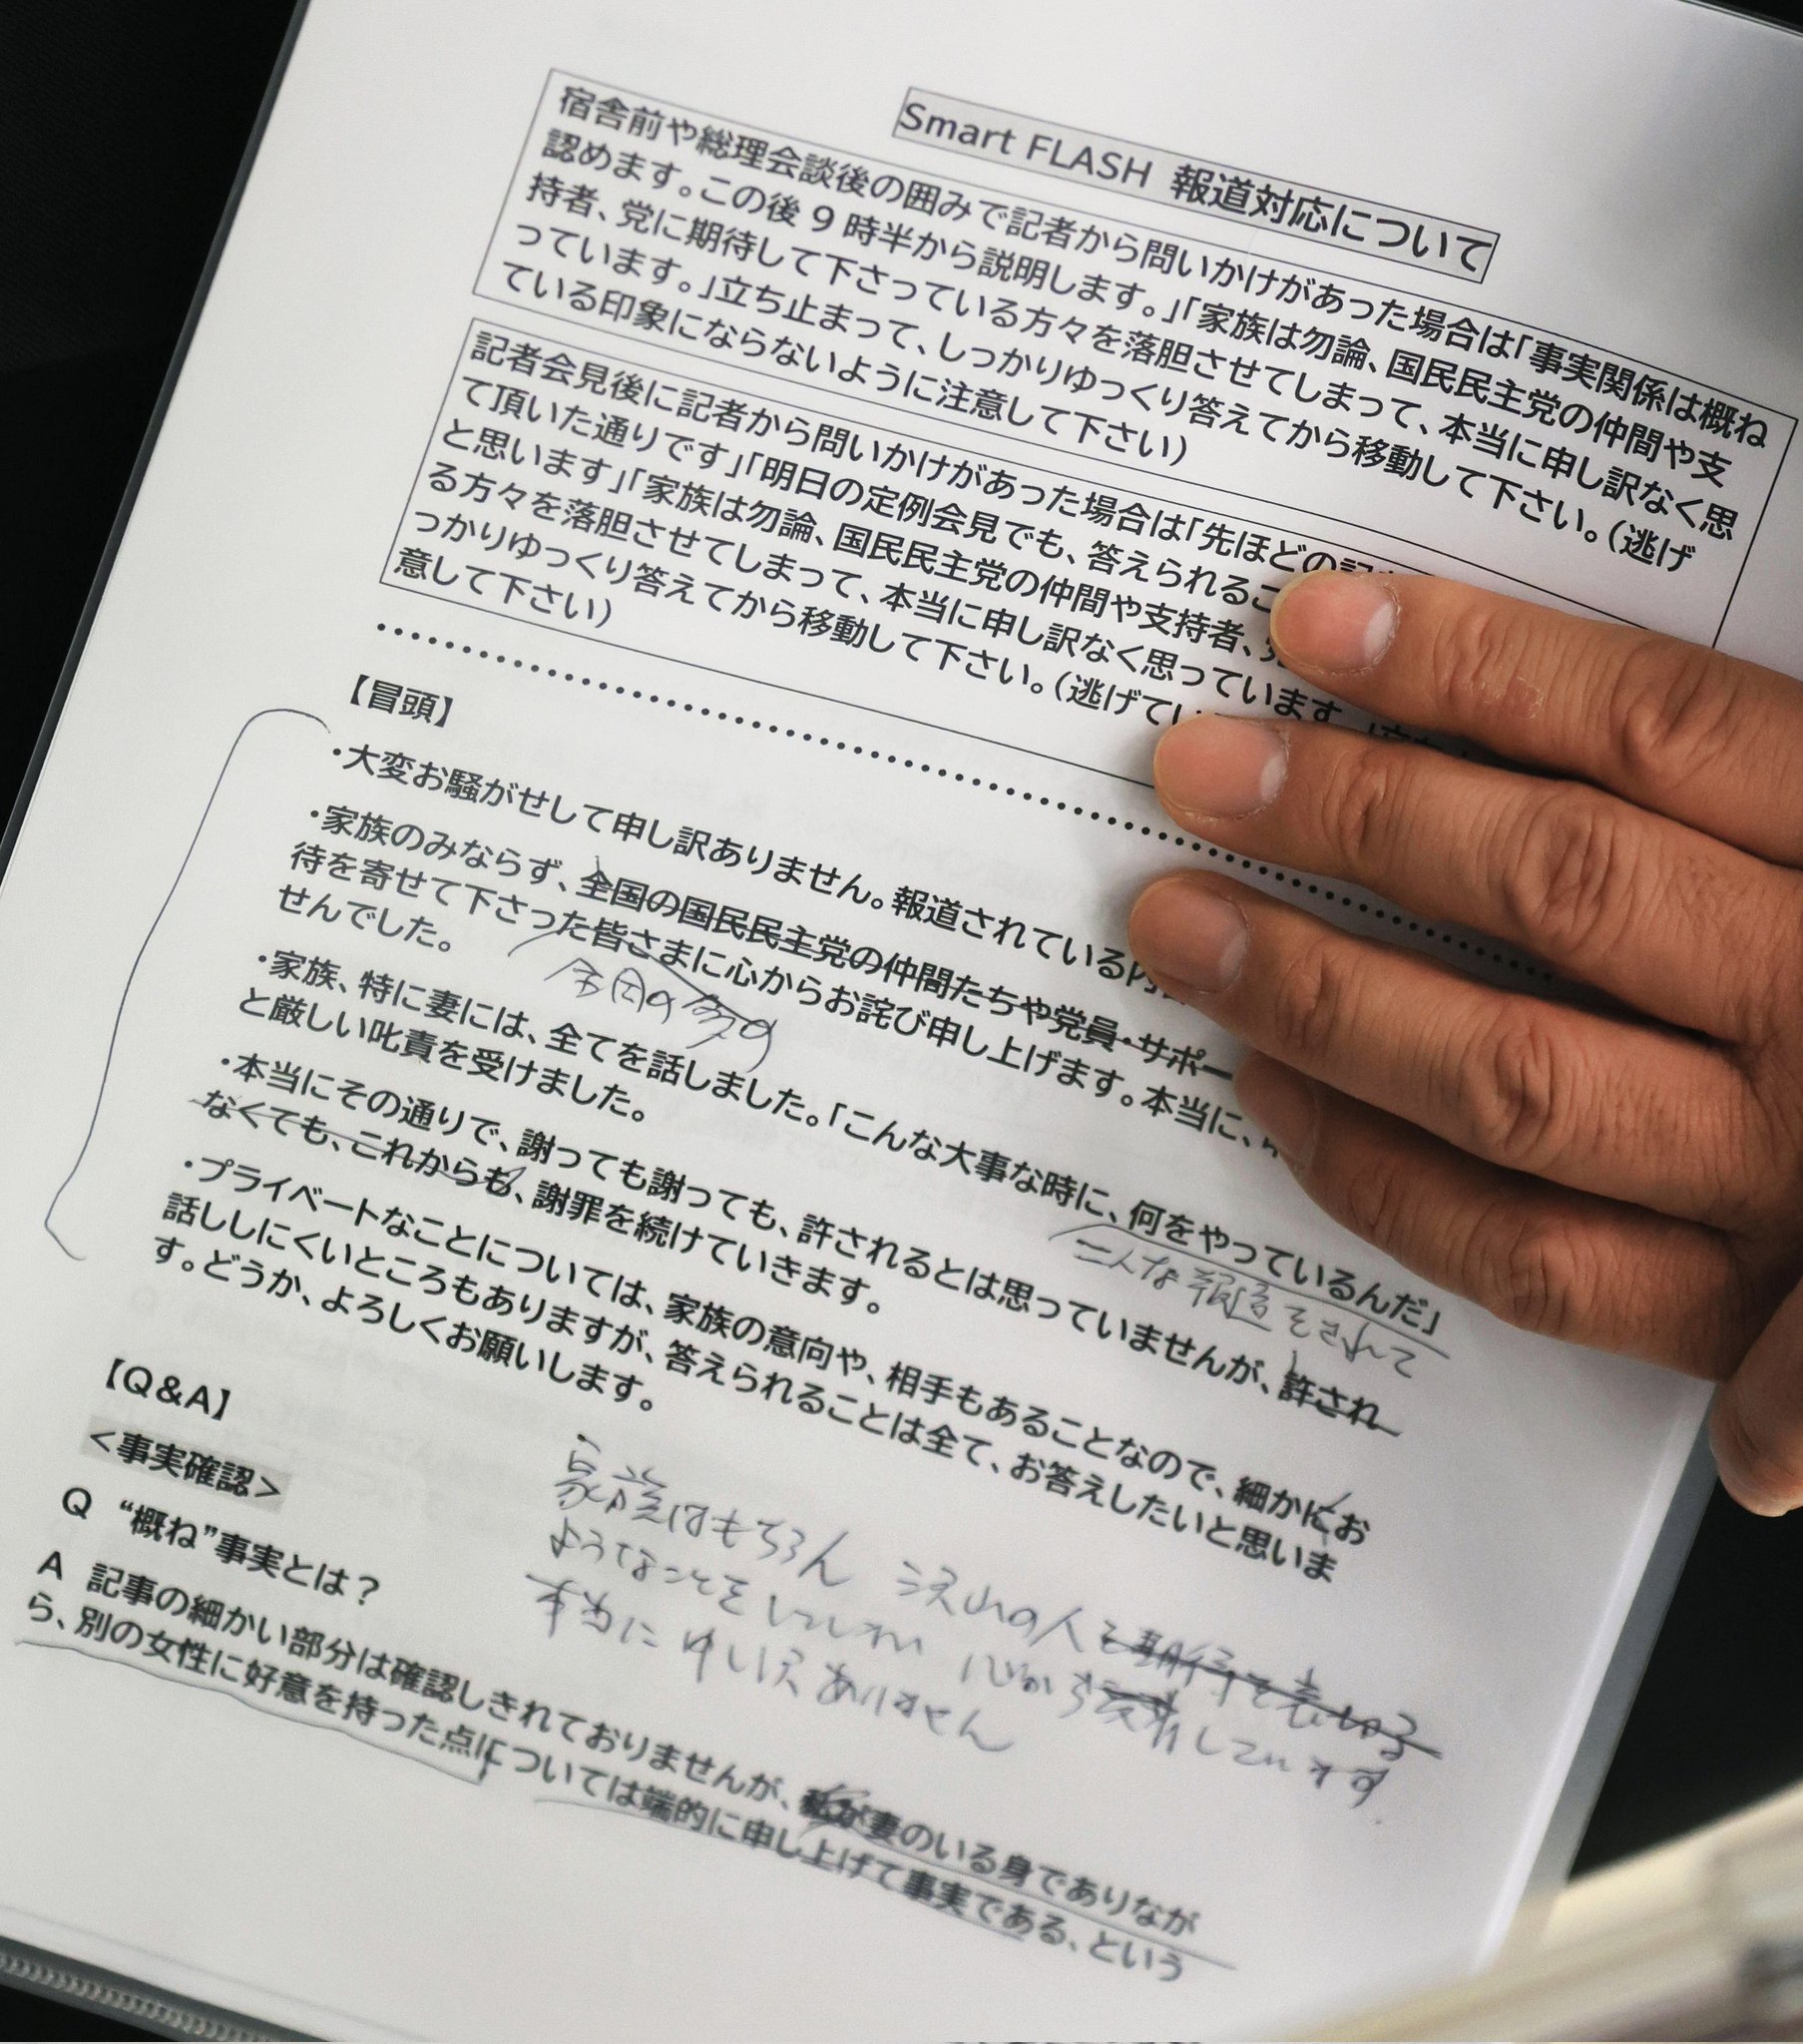 Smart FLASH 報道対応について
宿舎前や総理会談後の囲みで記者から問いかけがあった場合は「事実関係は概ね
認めます。この後 9 時半から説明します。」「家族は勿論、国民民主党の仲間や支
持者、党に期待して下さっている方々を落胆させてしまって、本当に申し訳なく思
っています。」立ち止まって、しっかりゆっくり答えてから移動して下さい。(逃げ
ている印象にならないように注意して下さい)
記者会見後に記者から問いかけがあった場合は「先ほどの記
て頂いた通りです」「明日の定例会見でも、答えられるこ
と思います」「家族は勿論、国民民主党の仲間や支持者、
る方々を落胆させてしまって、本当に申し訳なく思っています。」
っかりゆっくり答えてから移動して下さい。(逃げてい
意して下さい)
【冒頭】
・大変お騒がせして申し訳ありません。報道されている内
・家族のみならず、全国の国民民主党の仲間たちや党員・サポー
待を寄せて下さった皆さまに心からお詫び申し上げます。本当に、
せんでした。
全国の
・家族、特に妻には、全てを話しました。「こんな大事な時に、何をやっているんだ」
こんな報道をされて
と厳しい叱責を受けました。
・本当にその通りで、謝っても謝っても、許されるとは思っていませんが、許され
なくても、これからも、謝罪を続けていきます。
・プライベートなことについては、家族の意向や、相手もあることなので、細かにお
話ししにくいところもありますが、答えられることは全て、お答えしたいと思いま
す。どうか、よろしくお願いします。
家族はもちろん 沢山の人を期待を裏切る
ようなことをしてしまい 心から反省しています
本当に申し訳ありません
【Q&A】
<事実確認>
Q “概ね”事実とは?
A 記事の細かい部分は確認しきれておりませんが、私が妻のいる身でありなが
ら、別の女性に好意を持った点については端的に申し上げて事実である、という